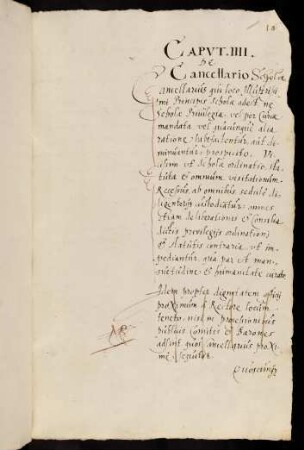 10
CAPVT. IIII.
De
Cancellario Scholæ
Cancellarius qui loco Illustriss
imi Principis Scholæ adest ne
Scholæ Privilegia vel per Curiæ
mandata vel quacunque alia
ratione labefactentur aut de
minuantur prospecto.
ut Scholæ ordinatio Sta
tuta et omnium visitationum
Recessus ab omnibus sedulo et
diligenter custodiantur
etiam deliberationes et Consilia
privilegijs ordinationi
et statutis contraria ut im
pediantur, qua par est man
suetudine et humanitate curato
Idem propter dignitatem officij
proximum a Rectore locum
teneto, nisi in processionibus
publicis Comites et Barones
adsint quos Cancellarius proxi
me sequitur.